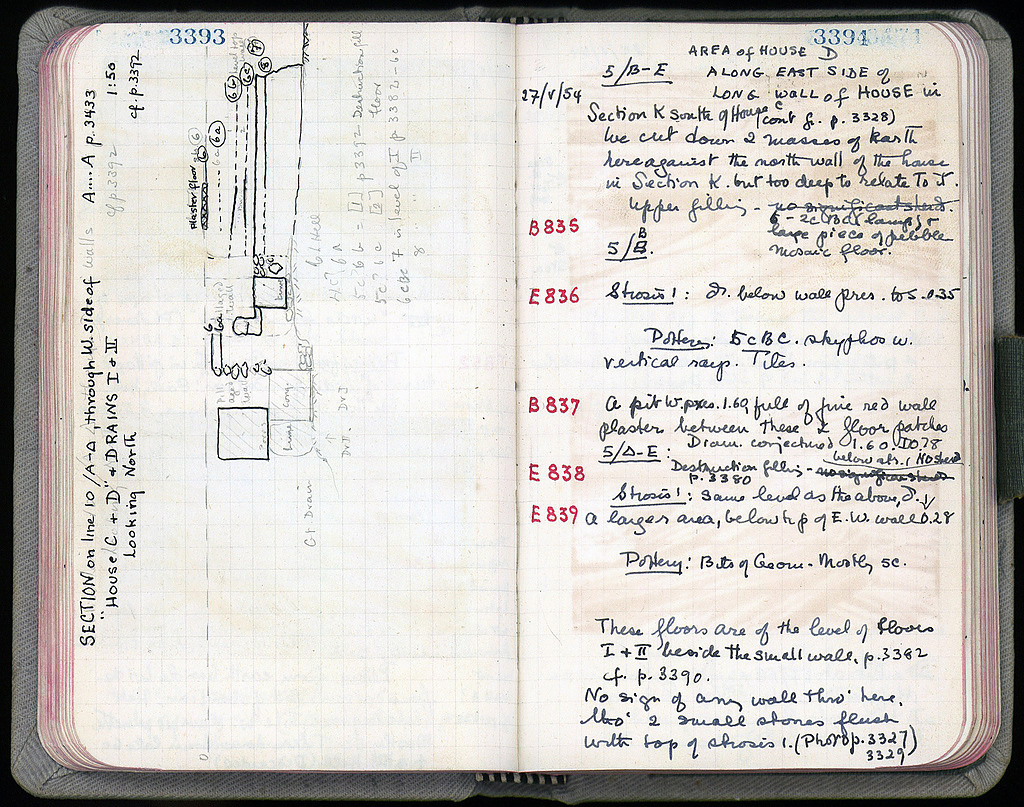 3393
SECTION on line 10/A-Δ, through W. side of walls A....A p. 3433
"House C + D" + DRAINS I + II
Looking North
cf p.3392
1:50
cf. p.3392
Plaster floor
6
6a
6
6a
6b
6c
7
8
5c? 6b = [1] p 3392 Destruction fill
5c? 6c [2] floor
6cBC 7 in level of I p 3382-6c
8 II
Gt Drain
Dr I
3394
AREA of HOUSE D
5/B-E ALONG EAST SIDE of
27/V/54 LONG WALL of HOUSE in
Section K south of House C (cont fr. p. 3328)
We cut down 2 masses of Earth
here against the north wall of the house
in Section K. but too deep to relate to it.
Upper filling - no significant sherd.
B 835
large piece of pebble
5/B. mosaic floor.
E 836 Strosis 1: D. below wall pres. to S. 0.35
Pottery: 5c BC. skyphos w.
vertical rays. Tiles.
B 837 A pit W. pres. 1.60, full of fine red wall
plaster between these 2 floor patches
Diam. conjectured 1.60, D. 0.78
5/Δ-E: below str. 1 No sherd
E 838 Destruction filling - no significant sherds
p. 3380
Strosis 1: Same level as the above, D. ↓
E 839 a larger area, below top of E.W. wall 0.28
Pottery: Bits of Geom. Mostly 5c.
These floors are of the level of floors
I + II beside the small wall. p. 3382
cf. p. 3390.
No sign of any wall thro' here,
tho' 2 small stones flush
with top of strosis 1. (Photo p. 3327)
3329